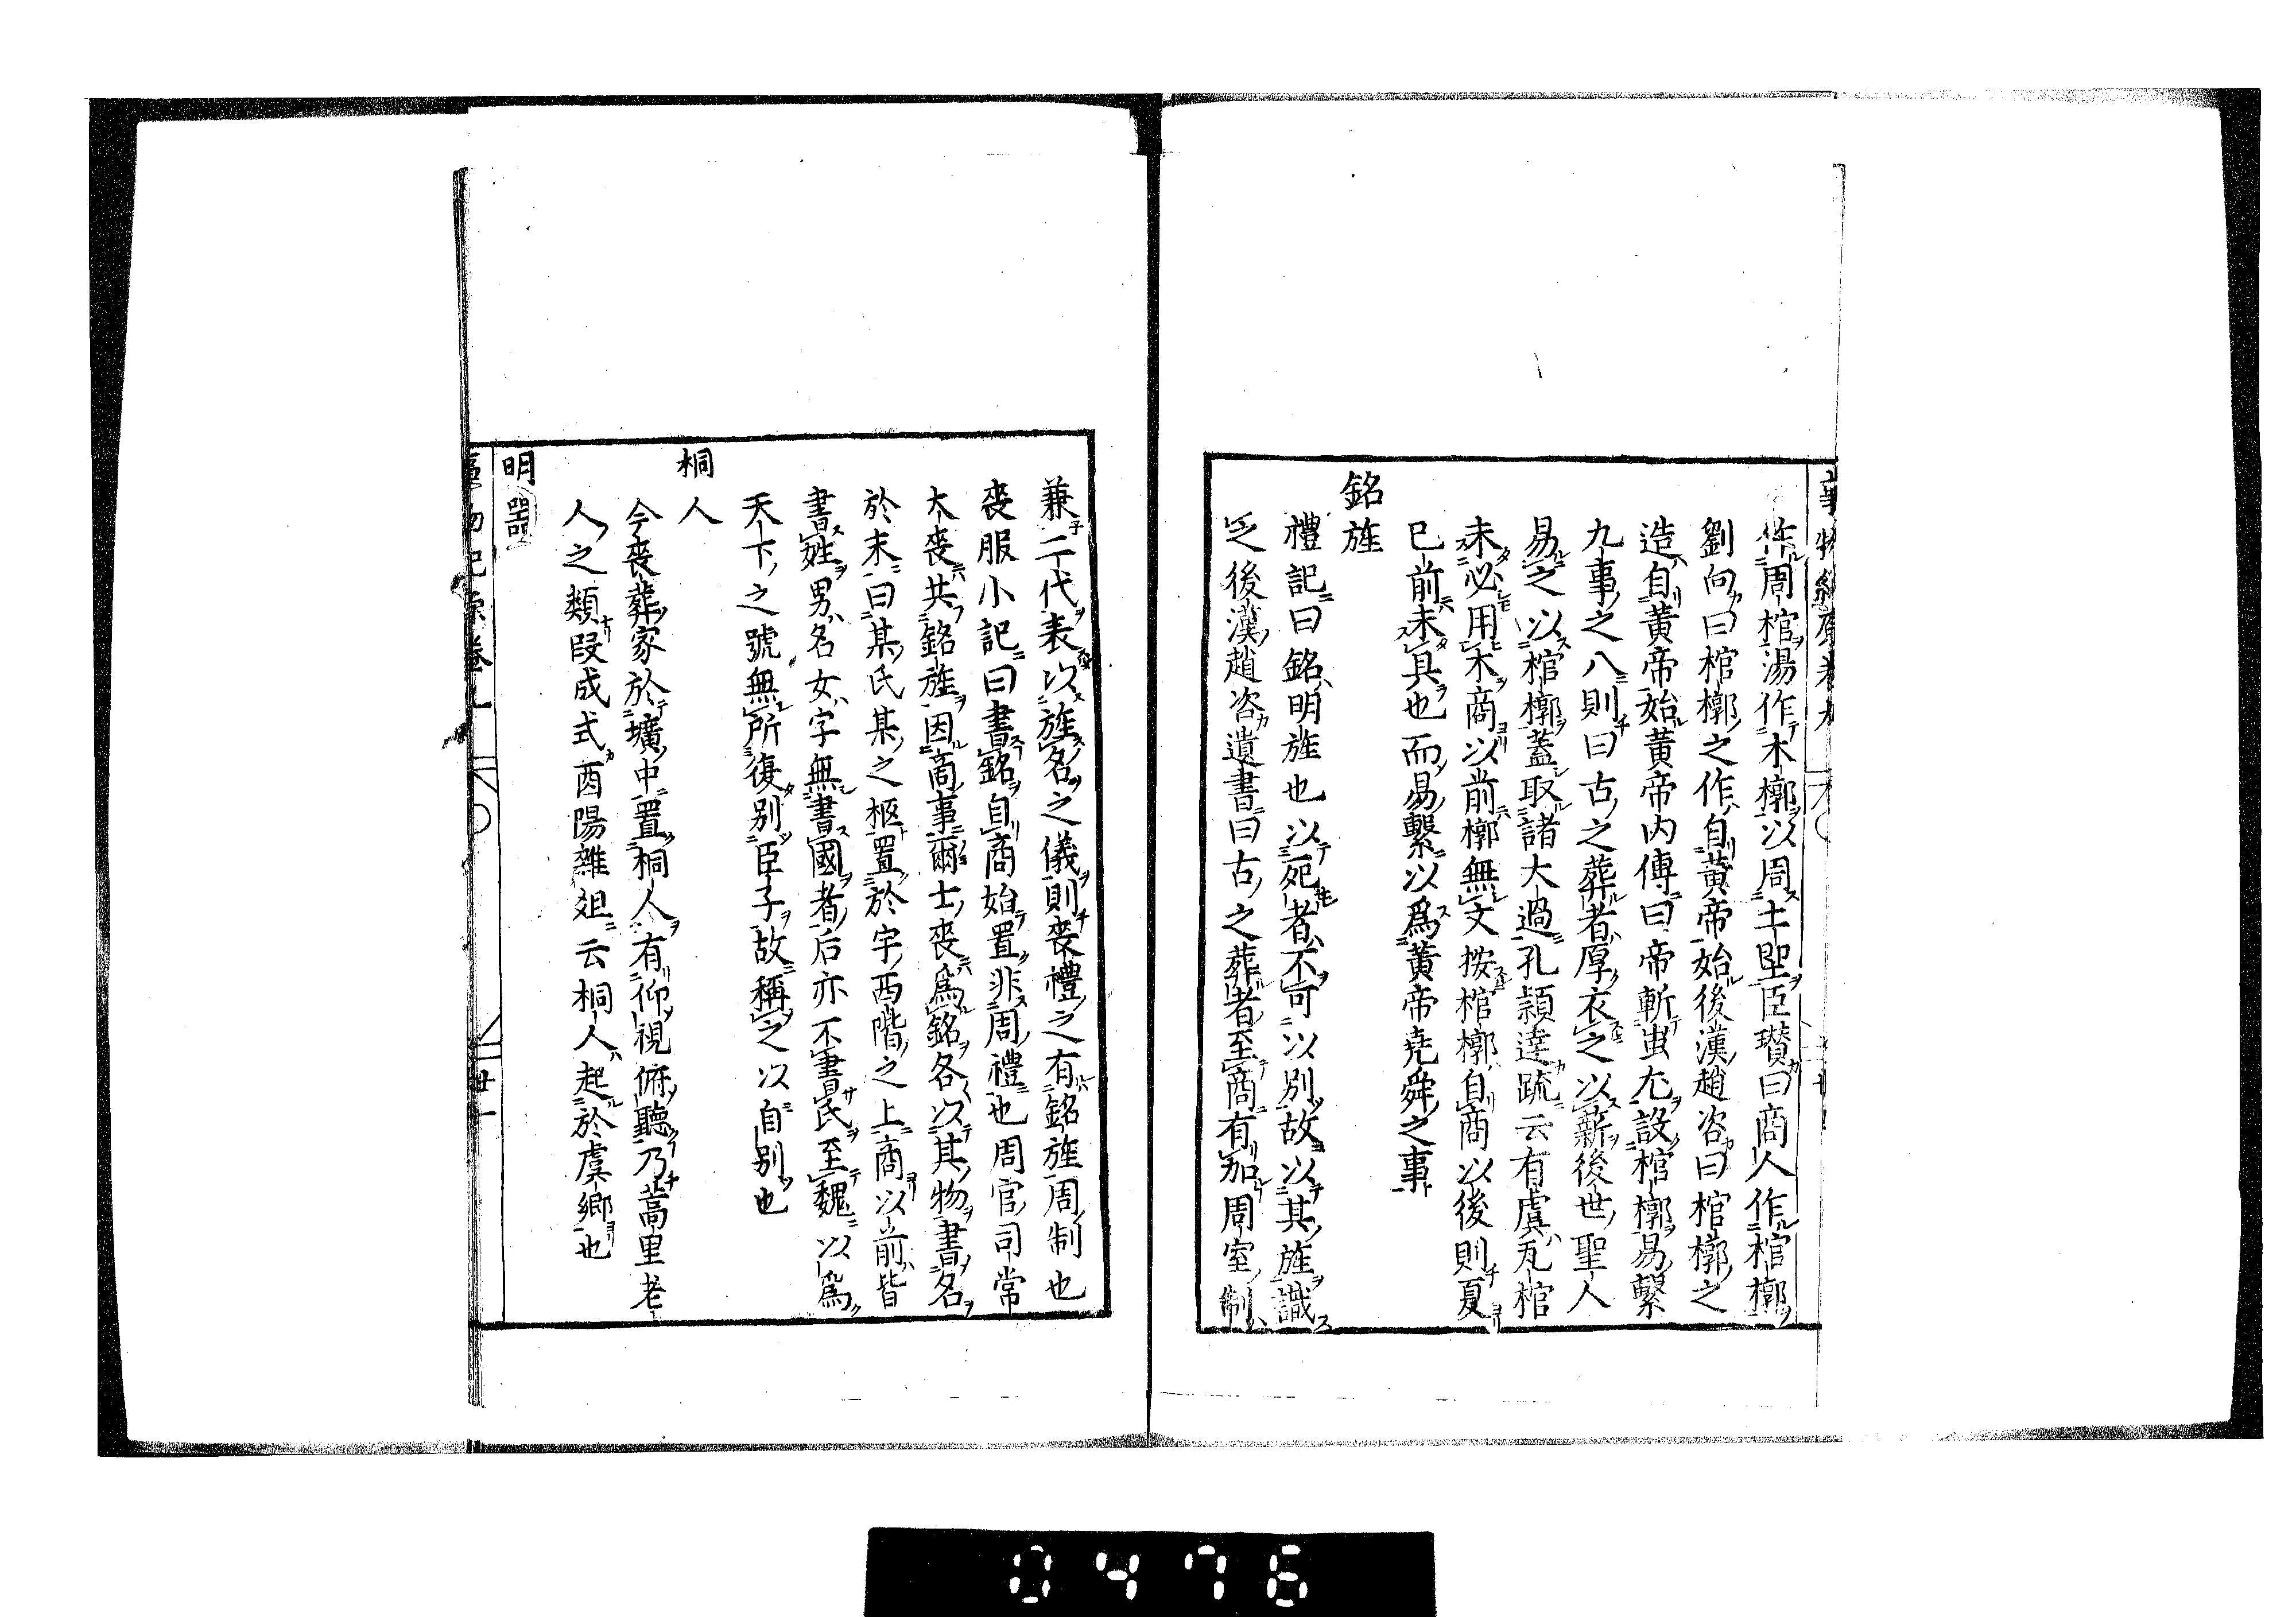 作周棺湯作木槨以周土堲臣瓚曰商人作棺槨
劉向曰棺槨之作自黃帝始後漢趙咨曰棺槨之
造自黃帝始黃帝内傳曰帝斬蚩尤設棺槨易繫
九事之八則曰古之葬者厚衣之以薪後世聖人
易之以棺槨蓋取諸大過孔頴達疏云有虞瓦棺
未必用木商以前槨無文按棺槨自商以後則夏
巳前未具也而易繫以爲黃帝堯舜之事
銘旌
禮記曰銘明旌也以死者不可以別故以其旌識
之後漢趙咨遺書曰古之葬者至商有加周室制
兼二代表以旌名之儀則喪禮之有銘旌周制也
喪服小記曰書銘自商始置非周禮也周官司常
大喪共銘旌因商事爾士喪爲銘各以其物書名
於末曰某氏某之柩置於宇西階之上商以前皆
書姓男名女字無書國者后亦不書氏至魏以爲
天下之號無所復别臣子故稱之以自别也
桐人
今喪葬家於壙中置桐人有仰視俯聽乃蒿里老
人之類段成式酉陽雜俎云桐人起於虞卿也
明器
事物紀原卷九
0476